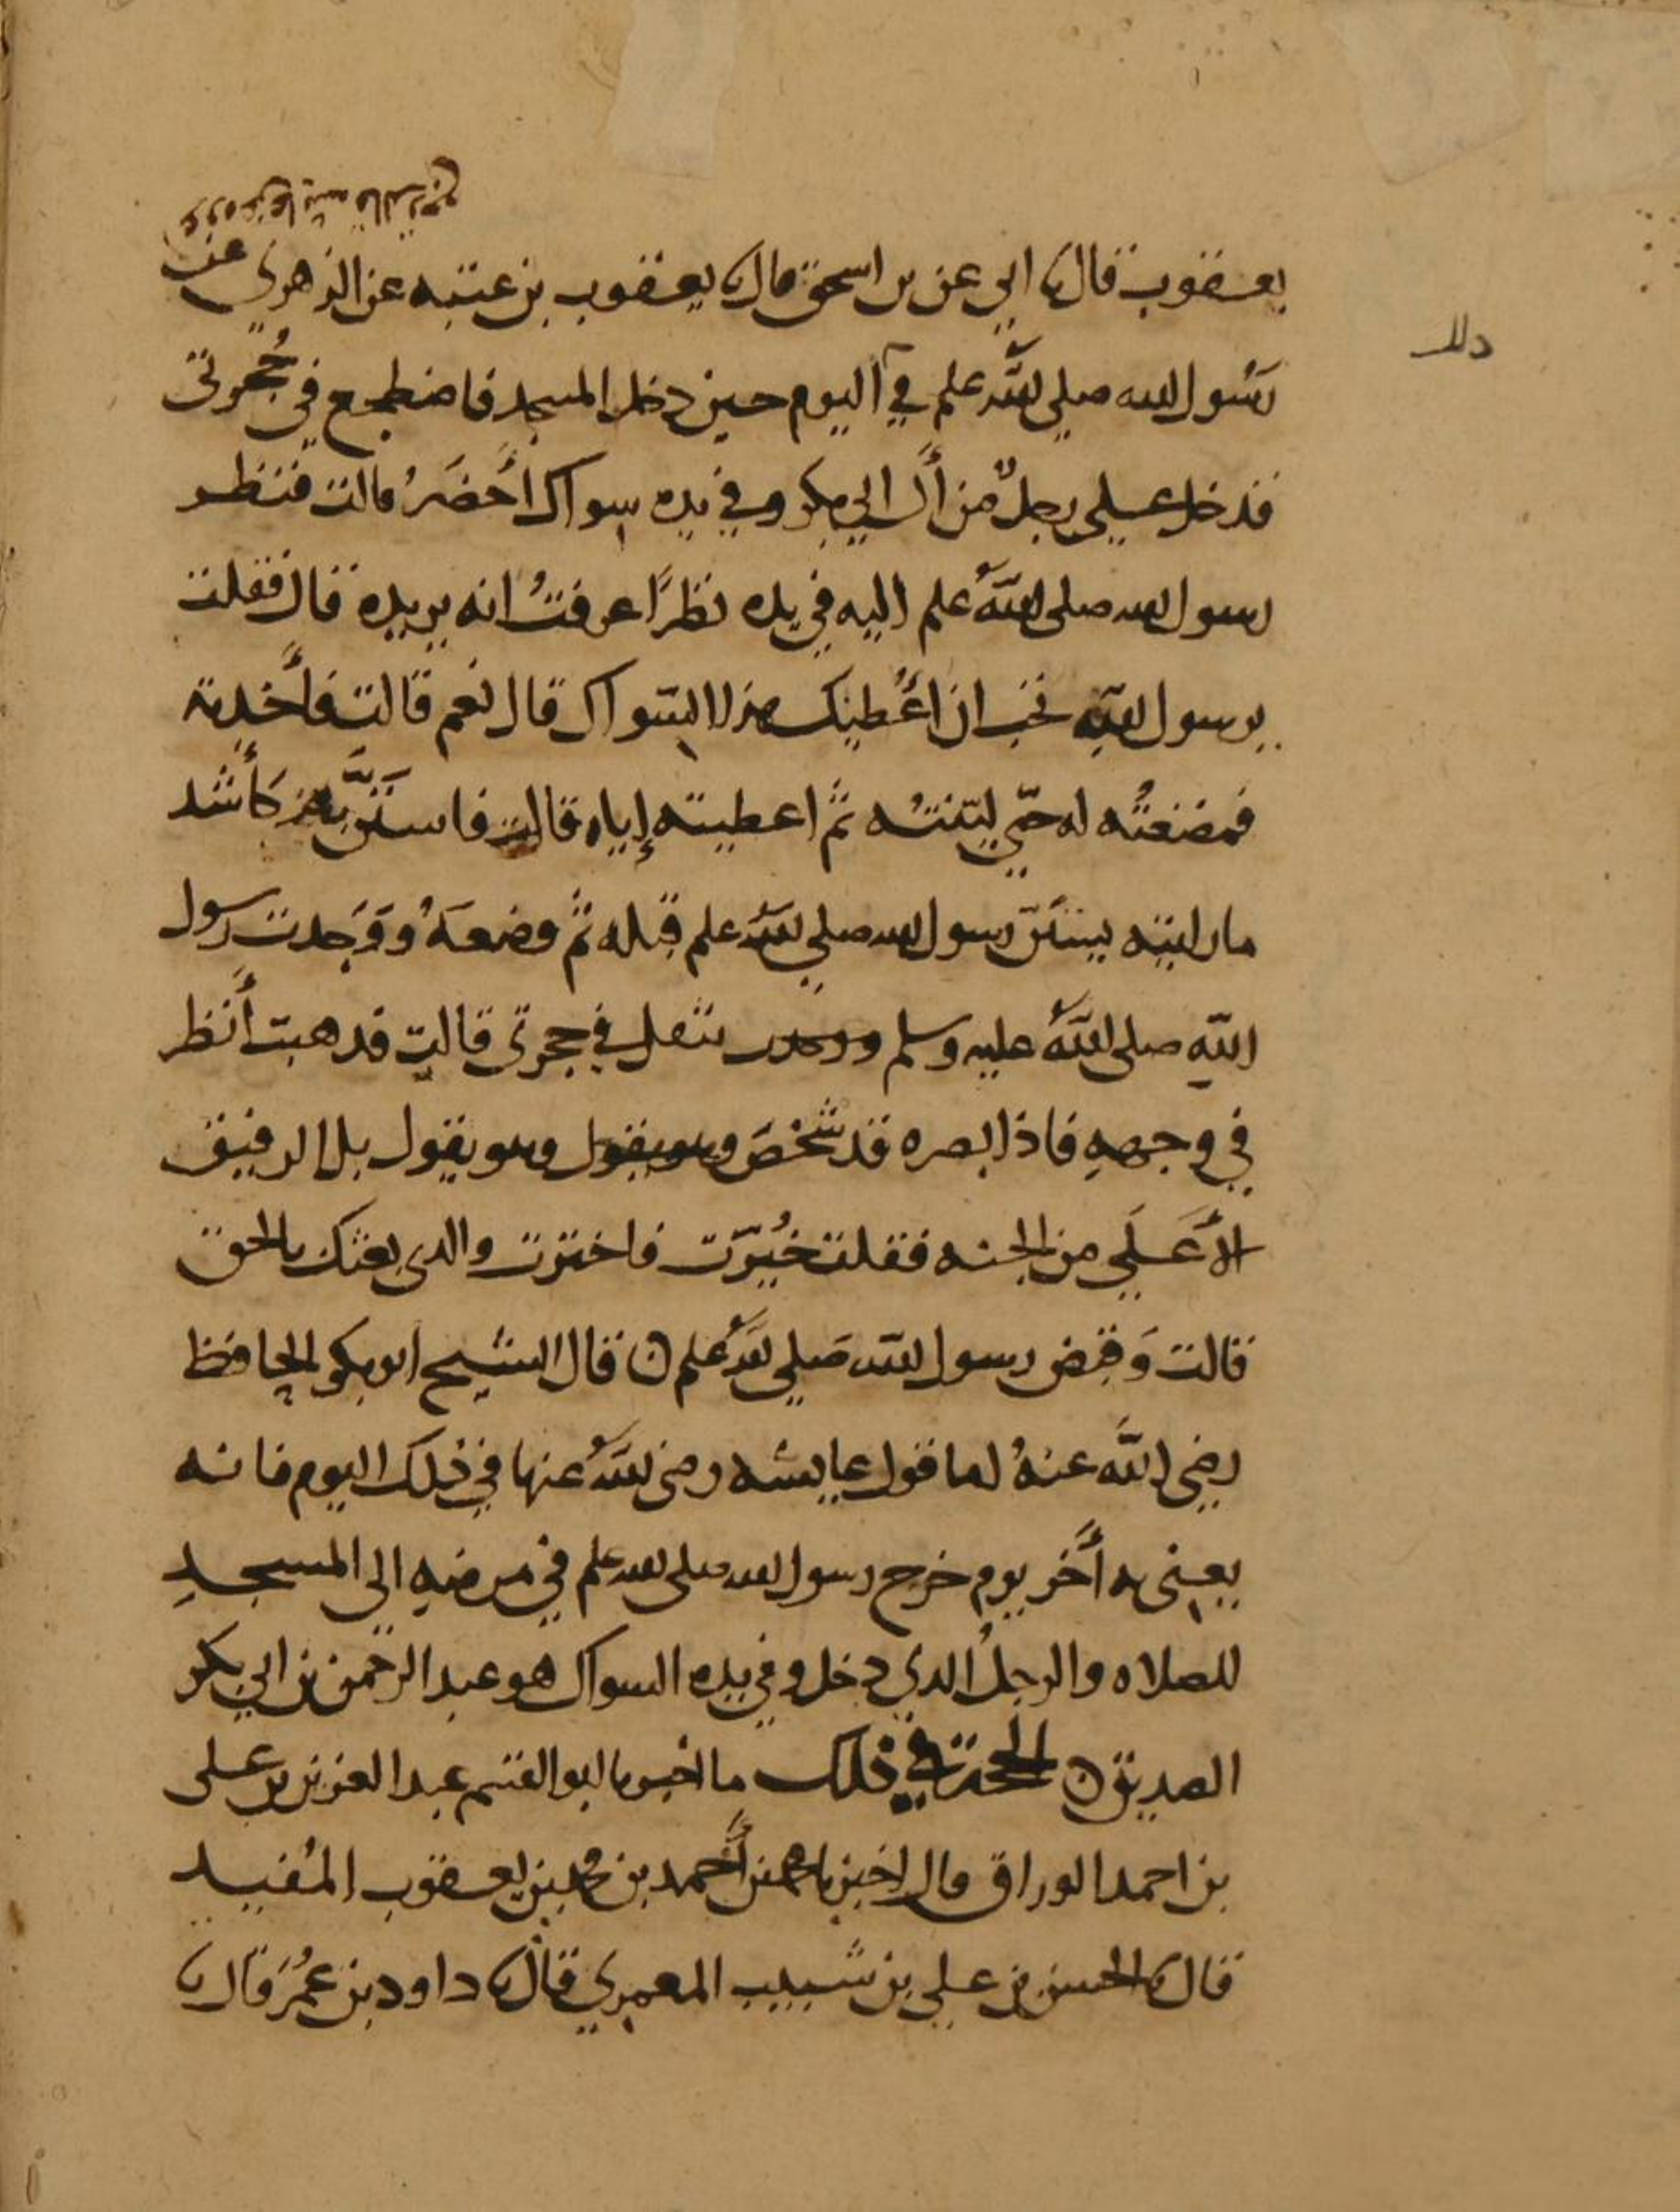 عروة عن عائشة قالت رجع
يعقوب قال نا ابي عن بن اسحق قال نا يعقوب بن عتبه عن الزهري عن
رسول الله صلى الله علم في اليوم حين دخل المسجد فاضطجع في حُجرتي
ذلك
فدخل علي رجلٌ من أل ابي بكر وفي يده سواك أخضَرُ قالت فنظر
رسول الله صلى الله علم اليه في يده نظرًا عرفتُ انه يريده قال فقلت
يرسول الله تحب ان أعْطيك هذا السّواك قال نعم قالت فأخذته
فمضغتُه له حتّي ليّنتُه ثم اعطيته إياه قالت فاستَنَّ به كأشد
ما رايته يستَنّ رسول الله صلي الله علم قبله ثم وضعَهُ ووَجدت رسول
الله صلى الله عليه وسلم يثقل في حجرتي قالت فذهبت أنظر
في وجههِ فاذا بصره قد شخْصَ وهو يقول وهو يقول بل الرفيق
الأعَلَي من الجنه فقلت خُيّرت فاخترت والذي بعثك بالحق
قالت وَقبض رسول الله صَلي الله علم ن قال الشيخ ابو بكر الحافظ
رضي الله عنهُ اما قول عايشه رضى الله عنها في ذلك اليوم فانه
يعني به أخر يوم خرج رسول الله صلى الله علم في مرضهِ الى المسجدِ
للصلاه والرجلُ الذي دخل وفي يده السواك هو عبد الرحمن بن ابي بكر
الصديق ن الحجة في ذلك ما اخبرنا ابو القسم عبد العزيز بن علي
بن احمد الوراق قال اخبرنا محمد بن أحمد بن محمد بن يعقوب المُفيد
قال نا الحسن بن علي بن شبيب المعمري قال نا داود بن عمُرَ قال نا